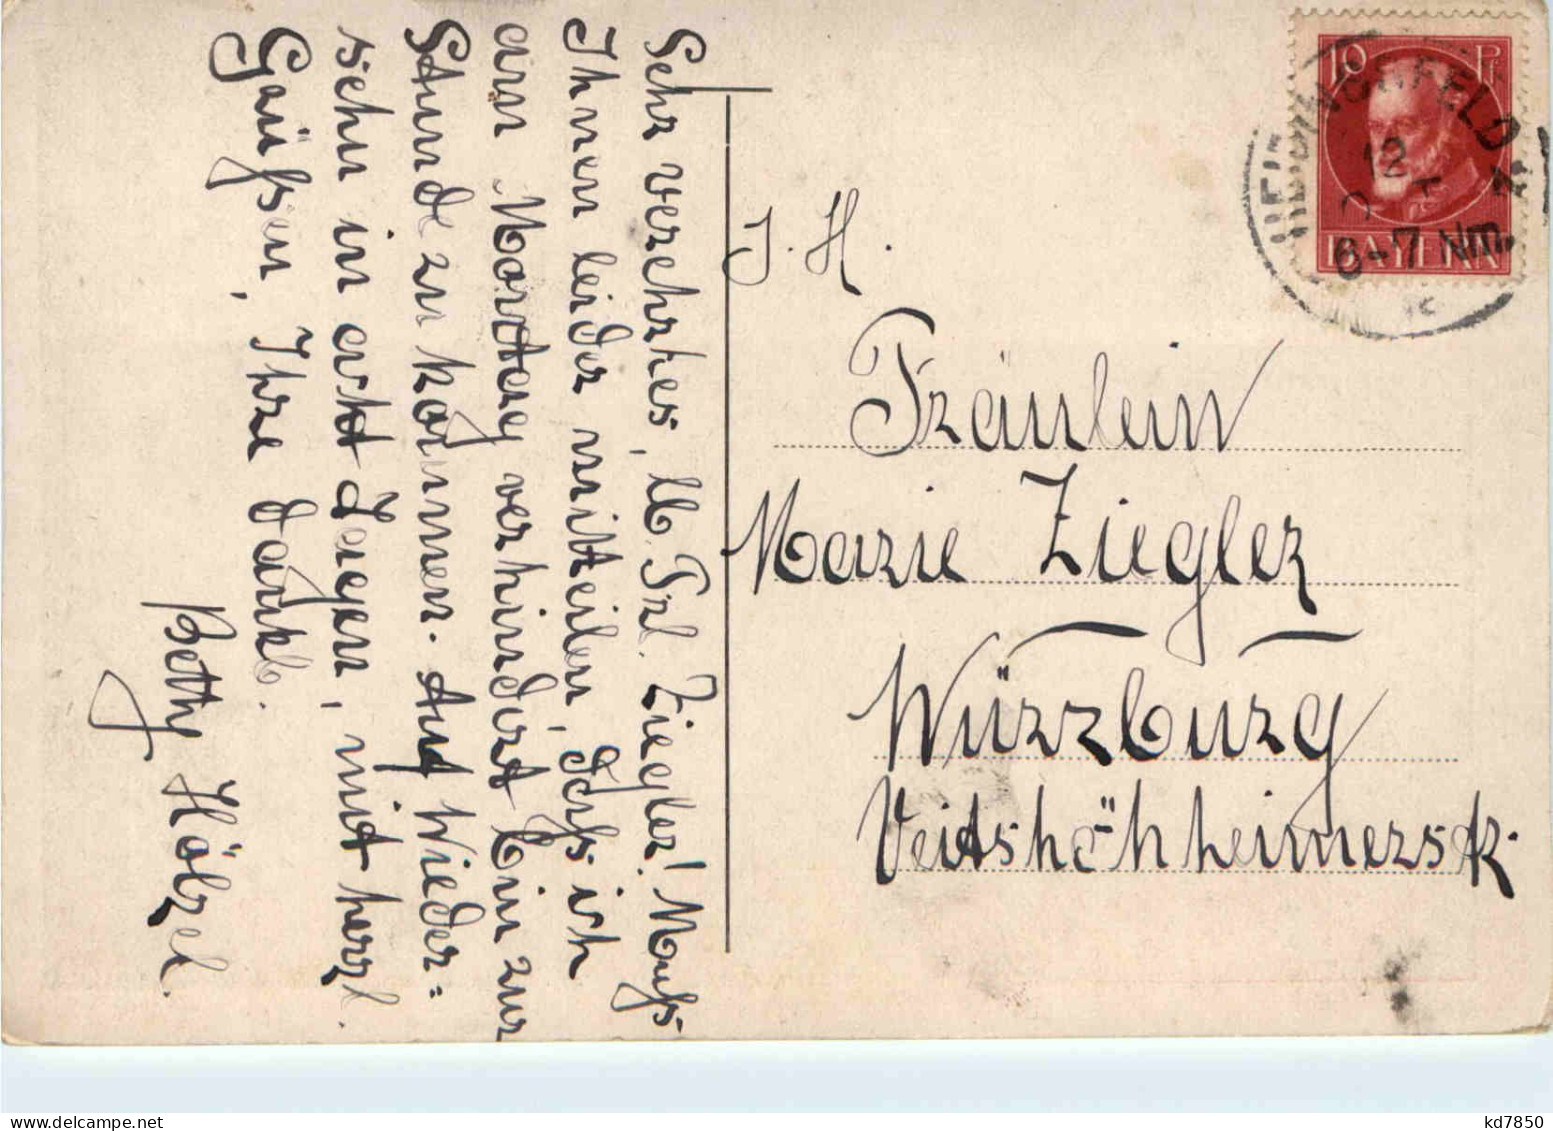 Sehr verehrtes, lb. Frl. Ziegler! Muss
Ihnen leider mitteilen, dass ich
am Montag verhindert bin zur
Stunde zu kommen. Auf Wieder=
sehn in acht Tagen, mit herzl.
Grüssen, Ihre dankb.
Betty Hölzel.
I. H.
Fräulein
Marie Ziegler
Würzburg
Veitshöchheimerstr.
10 Pf
BAYERN
HEIDINGSFELD
12
6-7 Nm.
kd7850